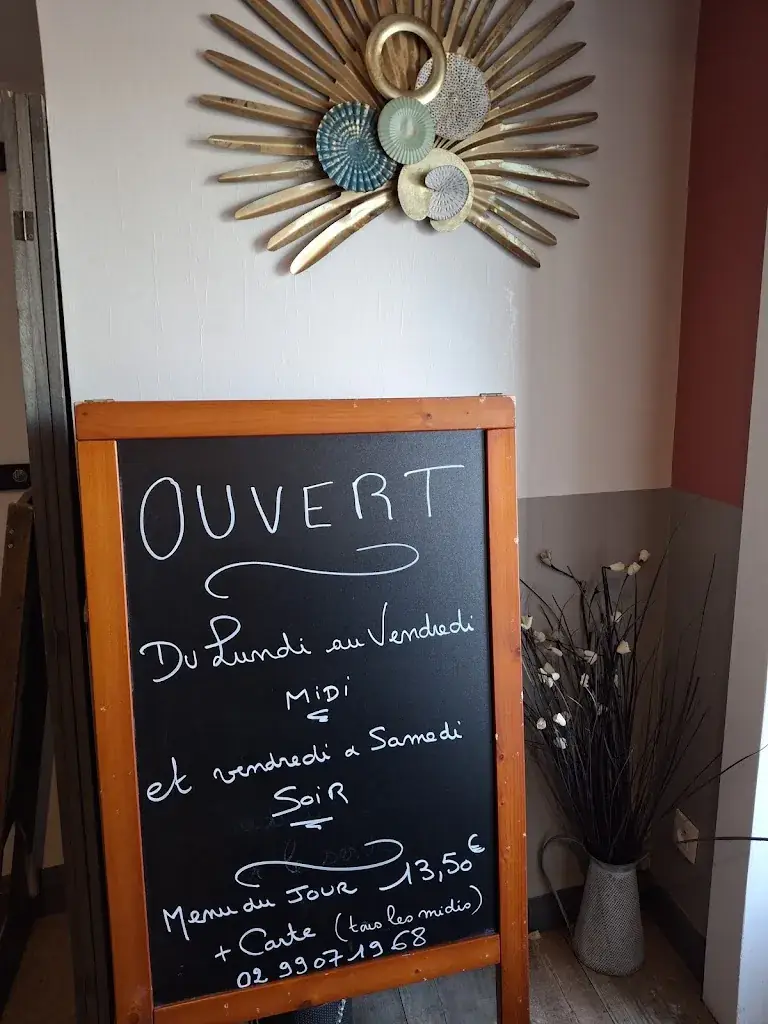 OUVERT
Du Lundi au Vendredi
MiDi
et vendredi a Samedi
SoiR
Menu du JOUR 13,50€
+ Carte (tous les midis)
02 99 07 19 68